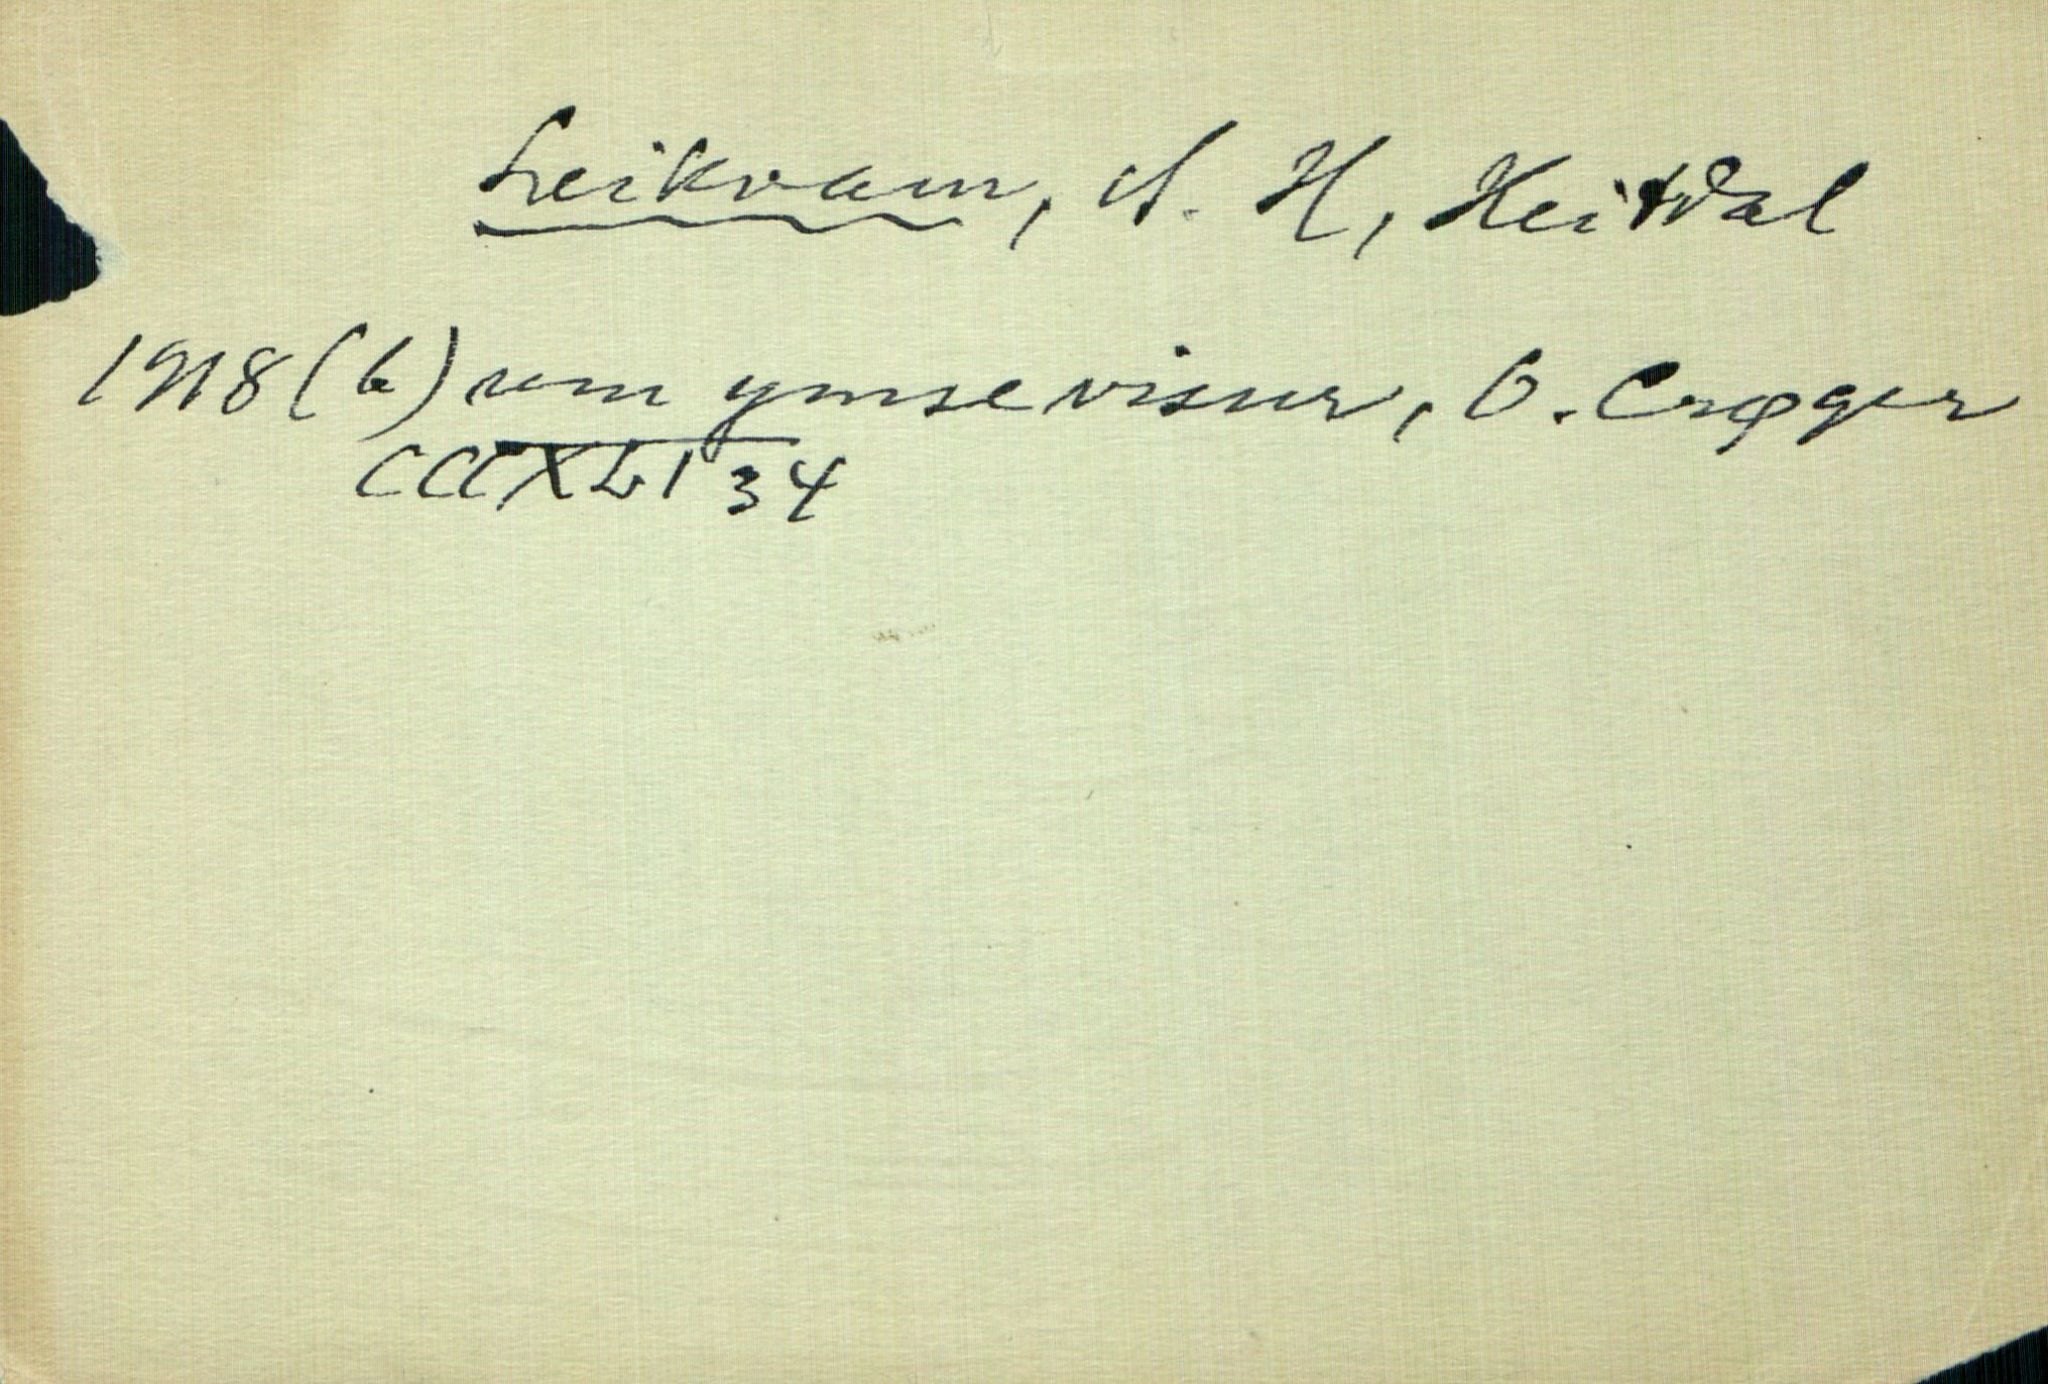 Leikvam, A. H, Heitdal
1918 (b) um ymse visur, O. Crøger
CCCXLI 34